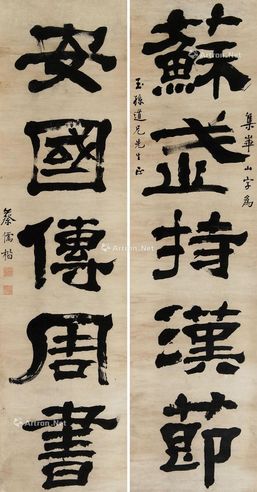 集華山字為
蘇武持漢節
玉孫道兄先生正
安國傳周書
蔡儒楷
Artron.Net